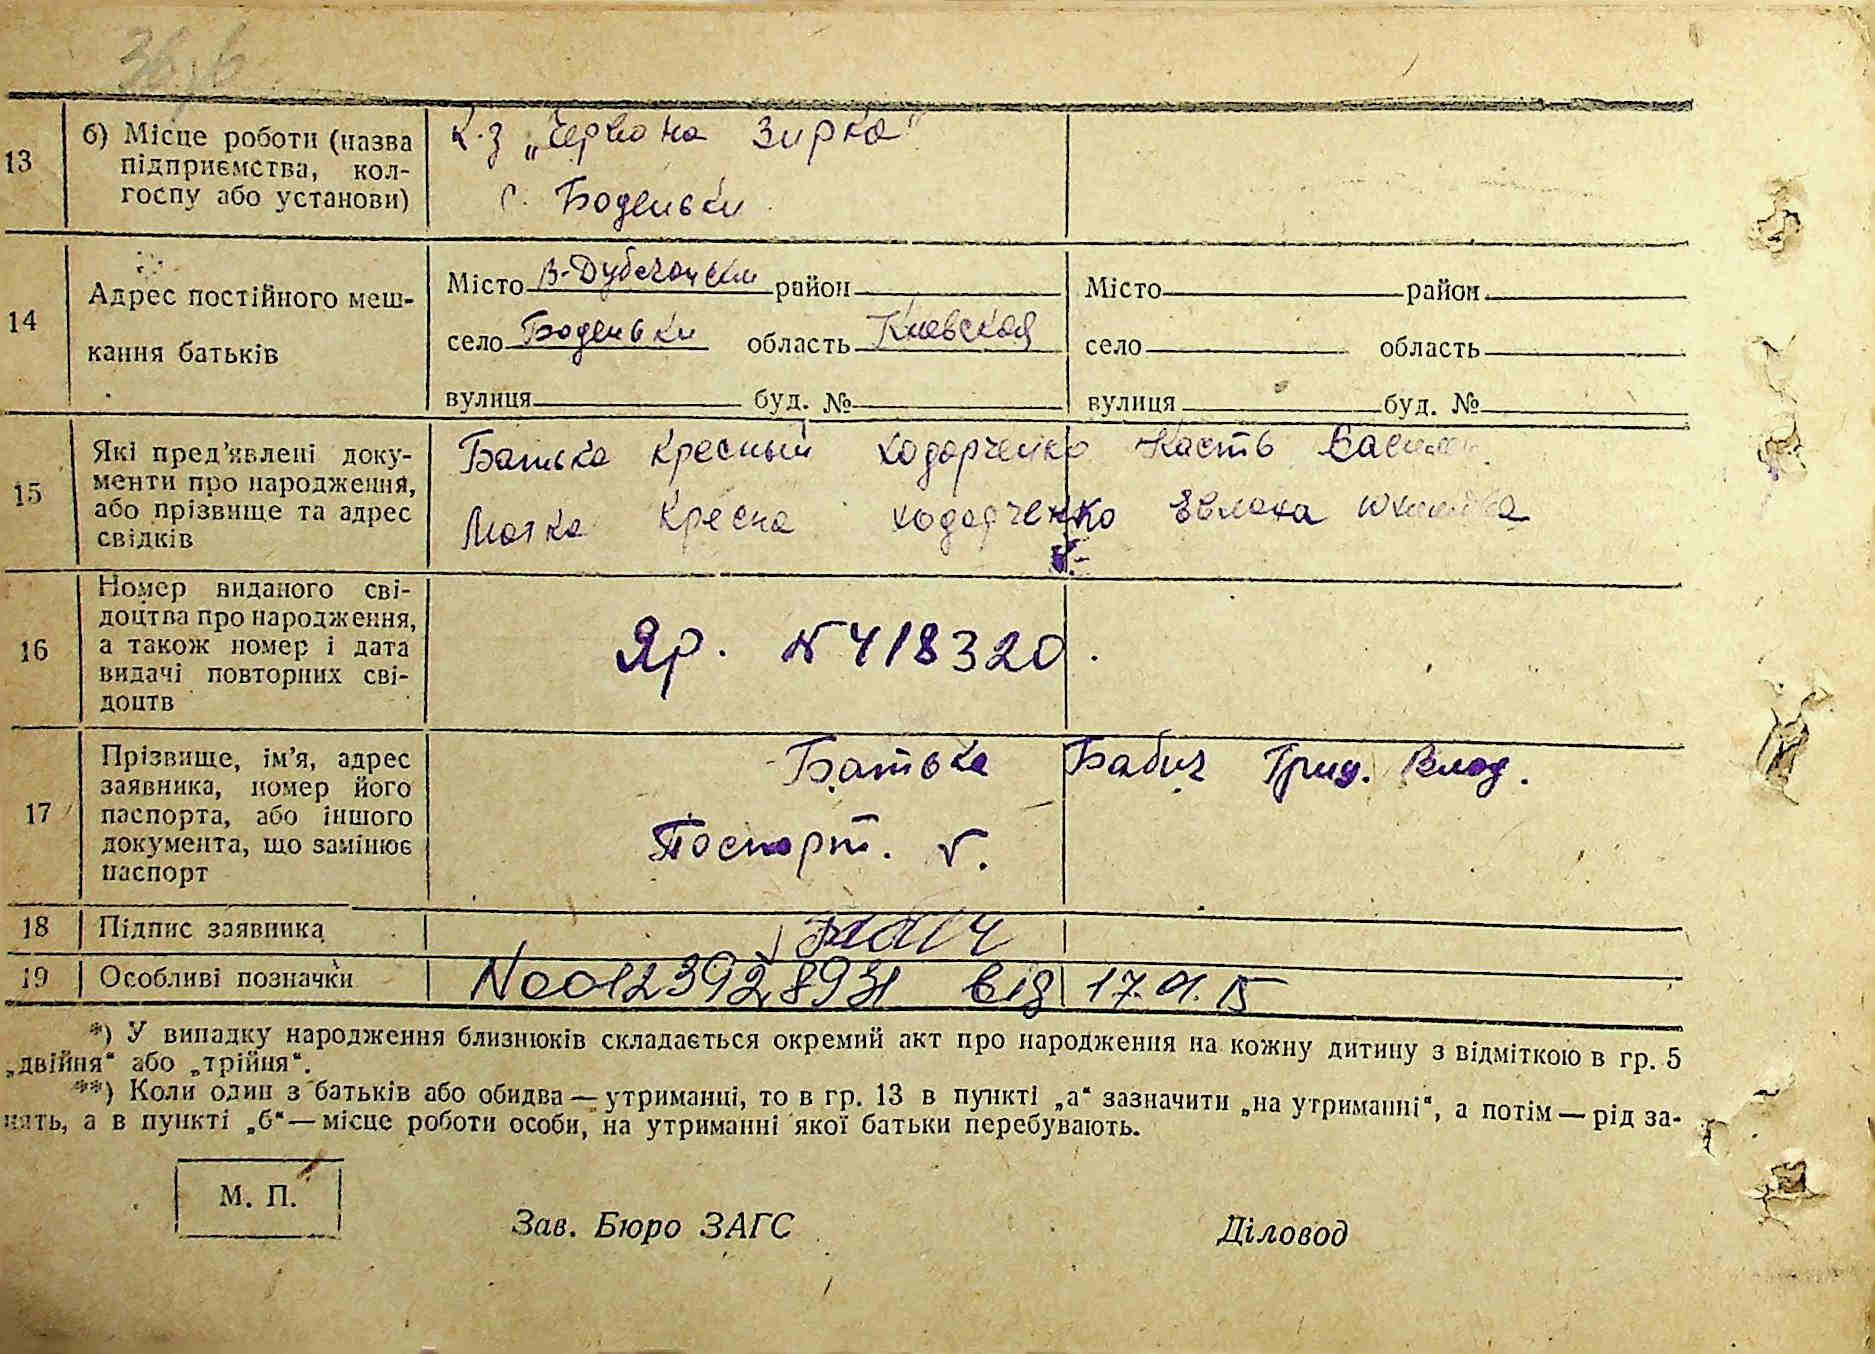 36,б
13
б) Місце роботи (назва
підприємства, кол-
госпу або установи)
К-з „Червона Зирка"
с. Боденьки
14
Адрес постійного меш-
кання батьків
Місто В-Дубечански район
село Боденьки область Киевская
вулиця буд. №
Місто район
село область
вулиця буд. №
15
Які пред'явлені доку-
менти про народження,
або прізвище та адрес
свідків
Батько кресный ходарченко Кость Васил
Матка Кресна ходарченко Евлаха
16
Номер виданого сві-
доцтва про народження,
а також номер і дата
видачі повторних сві-
доцтв
Яр. № 418320.
17
Прізвище, ім'я, адрес
заявника, номер його
паспорта, або іншого
документа, що замінює
паспорт
Батько Бабич Григ. Влад.
Паспорт. №.
18
Підпис заявника
19
Особливі позначки
№00123928931 від 17.01.15
*) У випадку народження близнюків складається окремий акт про народження на кожну дитину з відміткою в гр. 5
„двійня" або „трійня".
**) Коли один з батьків або обидва — утриманці, то в гр. 13 в пункті „а" зазначити „на утриманні", а потім — рід за-
нять, а в пункті „б" — місце роботи особи, на утриманні якої батьки перебувають.
М. П.
Зав. Бюро ЗАГС
Діловод